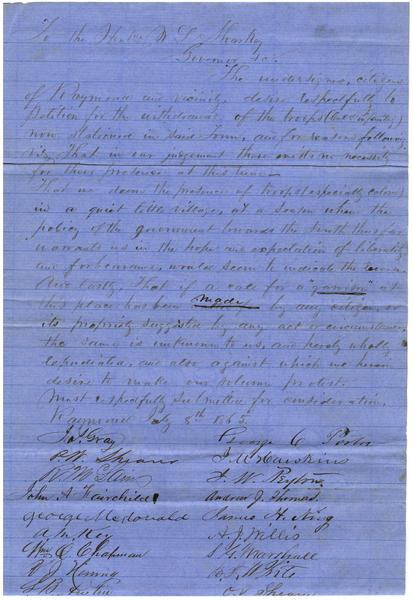 To the Honble W L Sharkey
Governor &c.
The undersigned, citizens
of Raymond and vicinity, desire respectfully to
Petition for the withdrawal of the troops
now stationed in said Town, and for reasons following
viz, That in our judgement there exists no necessity
for their presence at this time.
That we deem the presence of troops (especially colored)
in a quiet little village, at a season when the
policy of the government towards the South thus far
warrants us in the hope and expectation of liberality
and forbearance, would seem to indicate the reverse.
And lastly, That if a call for a "garrison" at
this place has been made by any citizen, or
its propriety suggested by any act or circumstance,
the same is unknown to us, and hereby wholly
repudiated, and also against which we
desire to make our solemn protest.
Most respectfully submitted for consideration.
Raymond July 8th 1865.
Gray George C
J. W.
John A Fairchild Andrew J. Thomas
George McDonald James H. King
A. M. Key A. J. Willis
Wm C. Chapman S. G. Marshall
R. J.